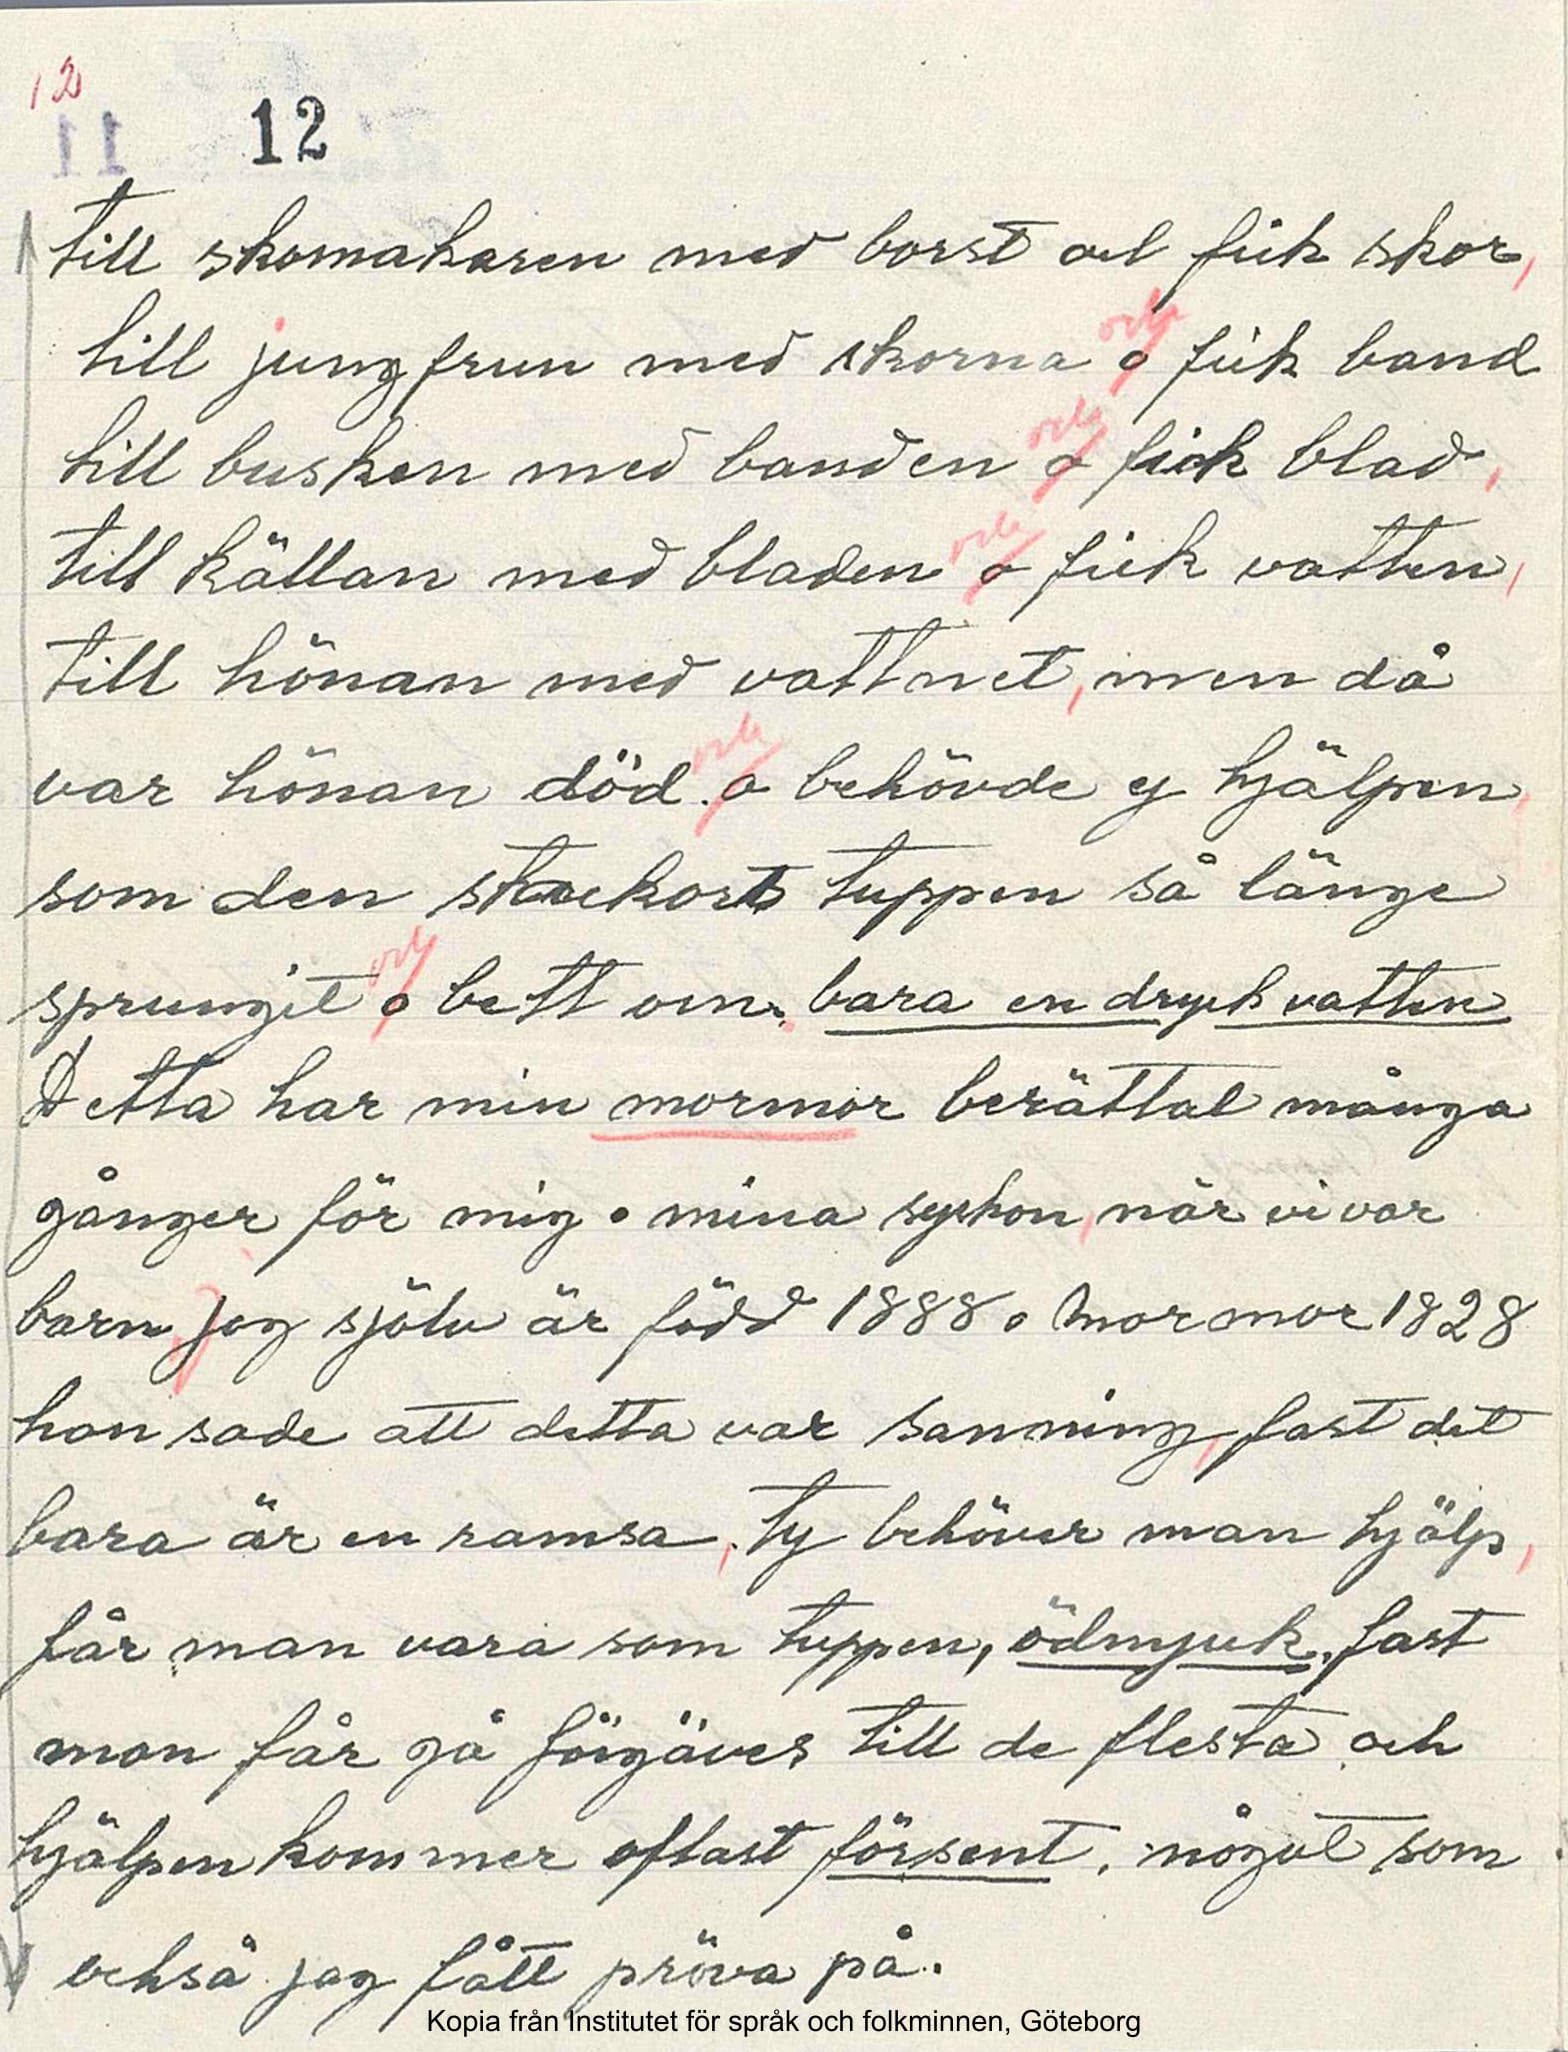 12
12
11
till skomakaren med borst och fick skor,
till jungfrun med skorna och o fick band
till busken med banden och o fick blad,
till källan med bladen och o fick vatten,
till hönan med vattnet, men då
var hönan död. och o behövde ej hjälpen,
som den stackors tuppen så länge
sprungit och o bett om. bara en dryck vatten
Detta har min mormor berättat många
gånger för mig o mina syskon, när vi var
barn Jag själv är född 1888 o Mormor 1828
hon sade att detta var sanning, fast det
bara är en ramsa, ty behöver man hjälp,
får man vara som tuppen, ödmjuk. fast
man får gå förgäves till de flesta och
hjälpen kommer oftast försent, något som
också jag fått pröva på.
Kopia från Institutet för språk och folkminnen, Göteborg